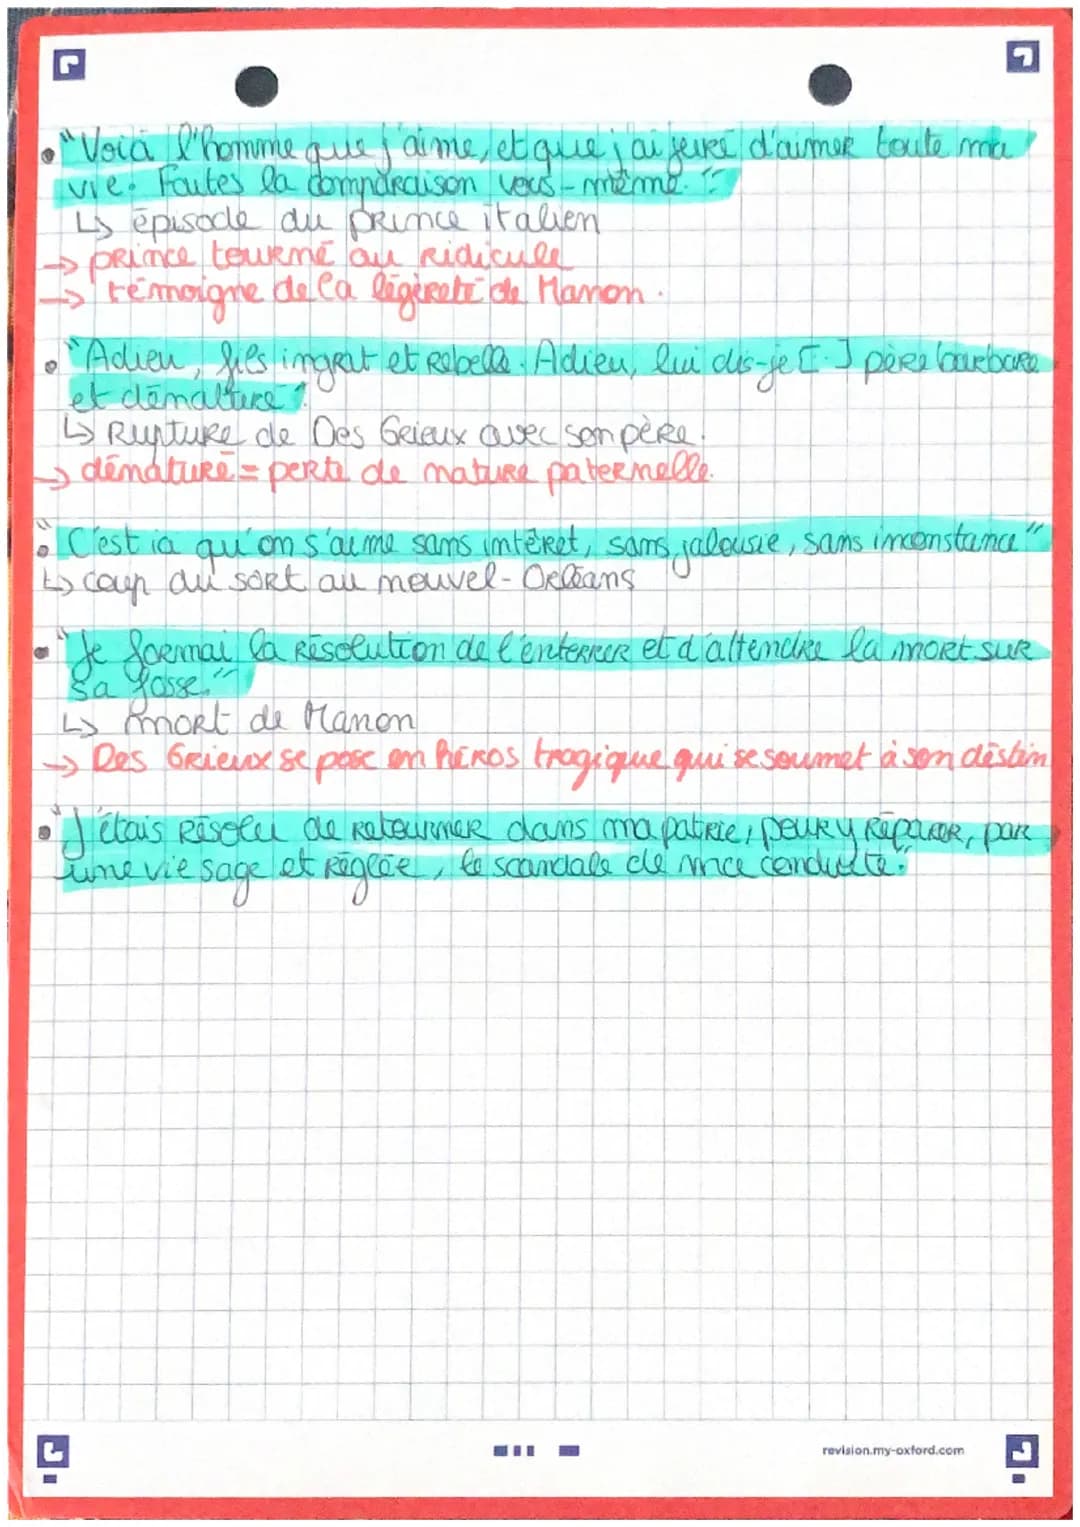 • "Voià l'homme que j'aime, et que j'ai juré d'aimer toute ma
vie. Faites la comparaison vous-même."
↳ épisode du prince italien
→ prince tourné au ridicule
→ témoigne de la légèreté de Manon.
• "Adieu, fils ingrat et rebelle. Adieu, lui dis-je [..] père barbare
et dénaturé".
↳ Rupture de Des Grieux avec son père.
→ dénaturé = perte de nature paternelle.
• "C'est ià qu'on s'aime sans intêret, sans jalousie, sans inconstance"
↳ coup du sort au nouvel-Orléans
• "Je formai la résolution de l'enterrer et d'attendre la mort sur
sa fosse."
↳ mort de Manon
→ Des Grieux se pose en héros tragique qui se soumet à son déstin
• "J'étais résolu de retourner dans ma patrie, pour y réparer, par
une vie sage et réglée, le scandale de ma conduite."
revision.my-oxford.com